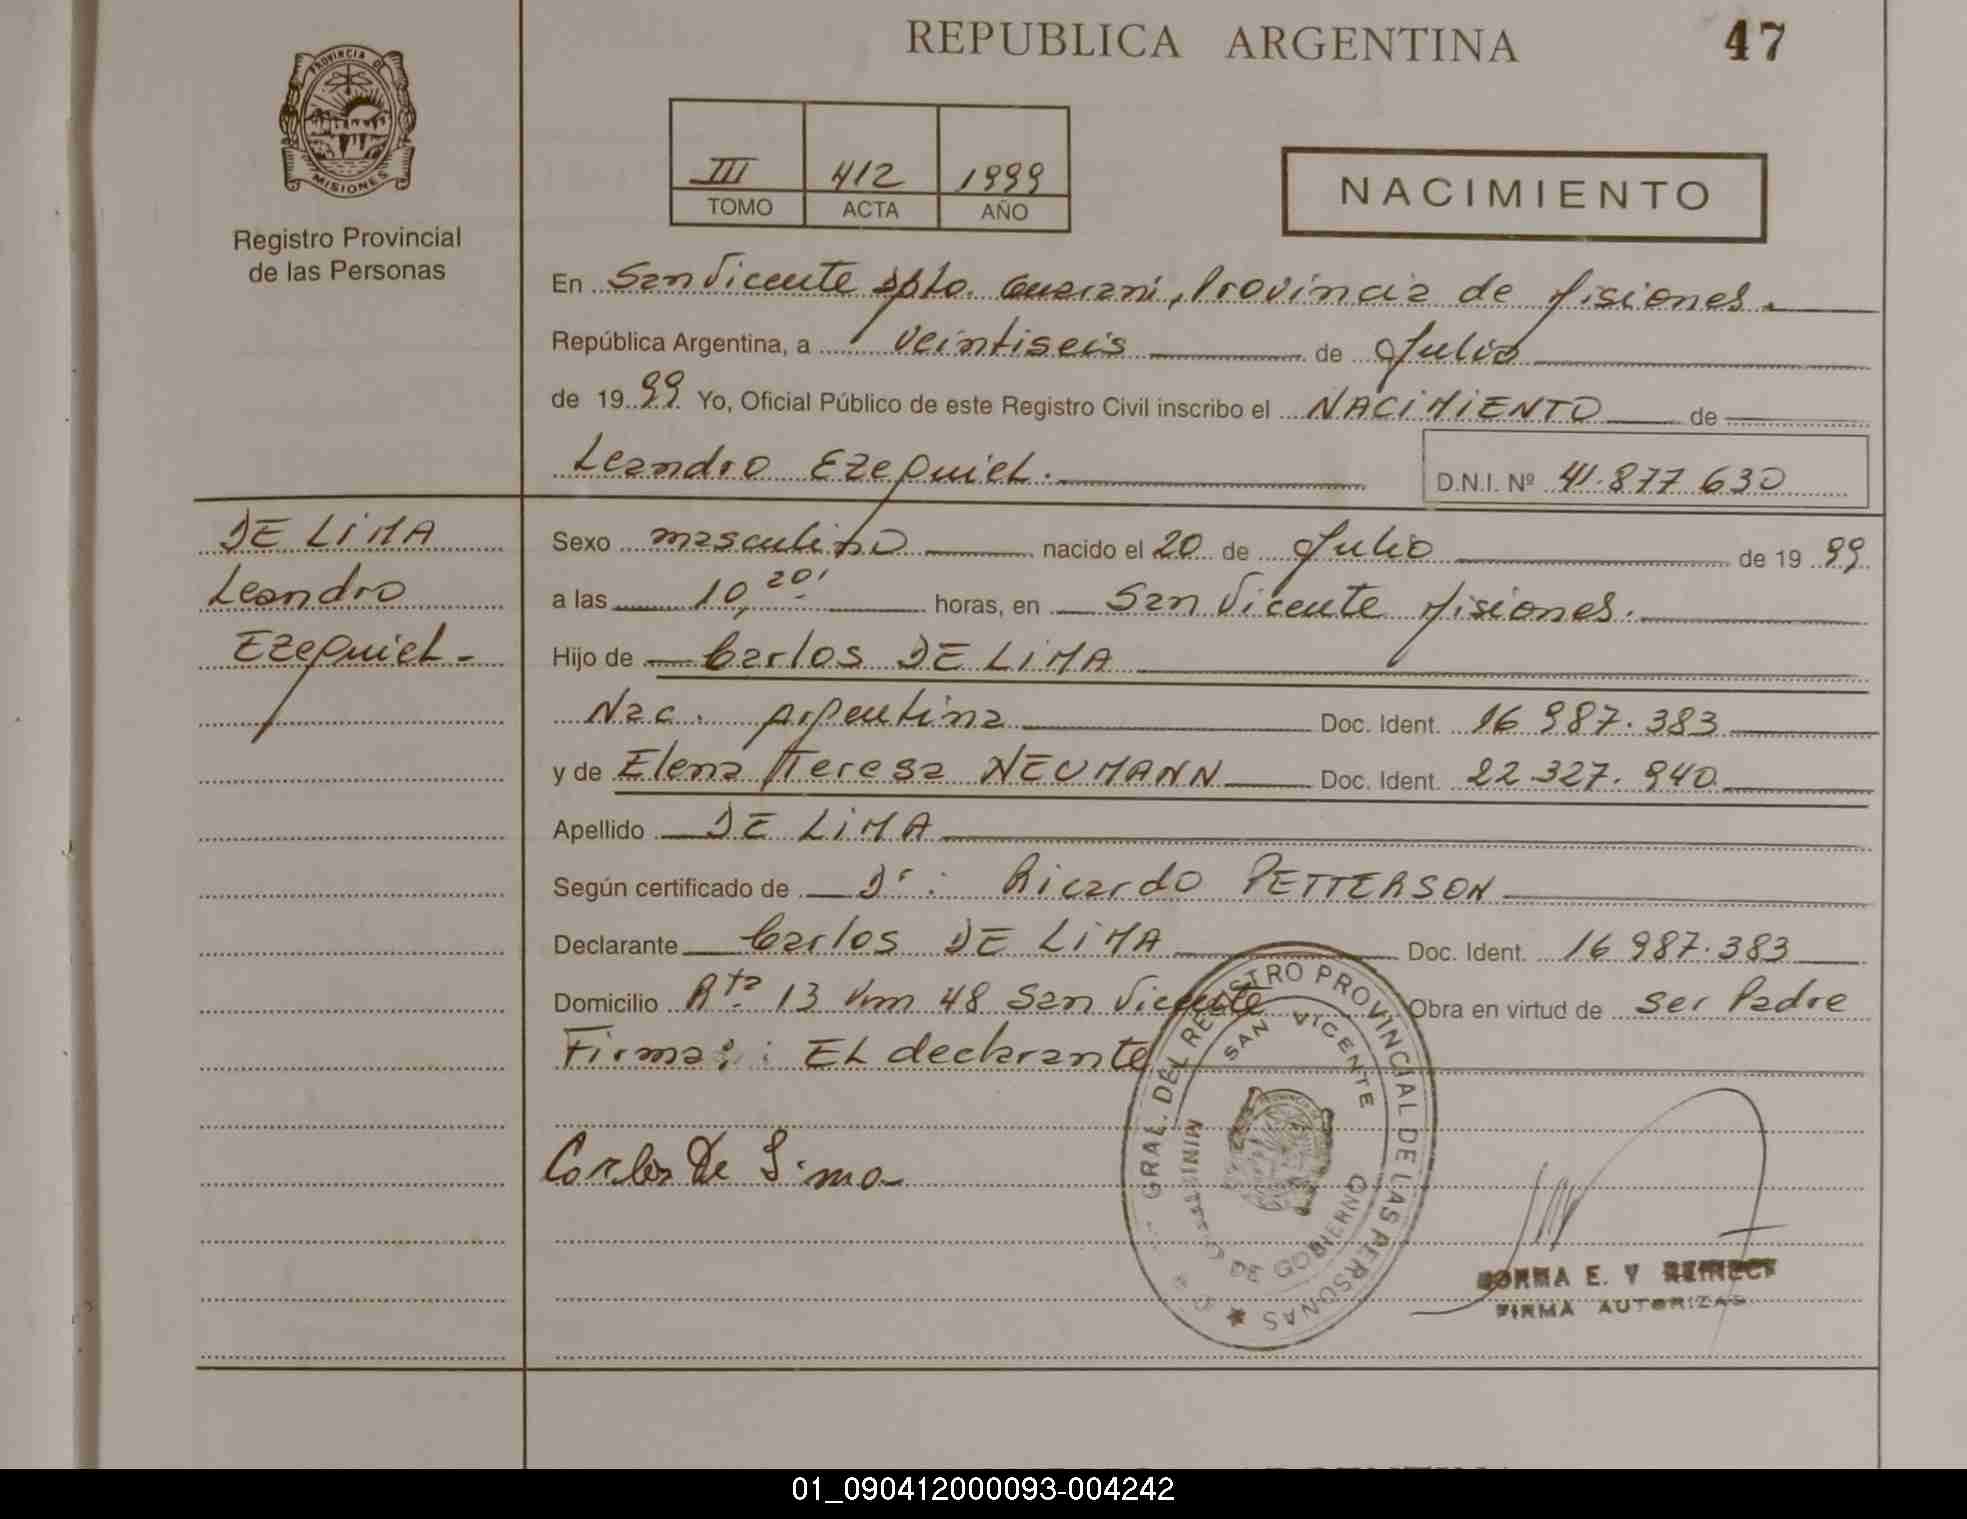 REPUBLICA ARGENTINA
47
PROVINCIA DE
MISIONES
Registro Provincial
de las Personas
III 412 1999
TOMO ACTA AÑO
NACIMIENTO
En San Vicente Dpto. Guarani, Provincia de Misiones.
República Argentina, a veintiseis de Julio
de 1999 Yo, Oficial Público de este Registro Civil inscribo el NACIMIENTO de
Leandro Ezequiel.
D.N.I. Nº 41.877.630
DE LIMA
Leandro
Ezequiel-
Sexo masculino nacido el 20 de Julio de 1999
a las 10,20' horas, en San Vicente Misiones.
Hijo de Carlos DE LIMA
Nac. Argentina Doc. Ident. 16.987.383
y de Elena Teresa NEUMANN Doc. Ident. 22.327.940
Apellido DE LIMA
Según certificado de Dr: Ricardo PETTERSON
Declarante Carlos DE LIMA Doc. Ident. 16.987.383
Domicilio Rta 13 Km 48 San Vicente Obra en virtud de ser Padre
Firma: : EL declarante
Carlos De Lima
GRAL. DEL REGISTRO PROVINCIAL DE LAS PERSONAS
SAN VICENTE
MINISTERIO DE GOBIERNO
NORMA E. V
FIRMA AUTORIZAD
01_090412000093-004242